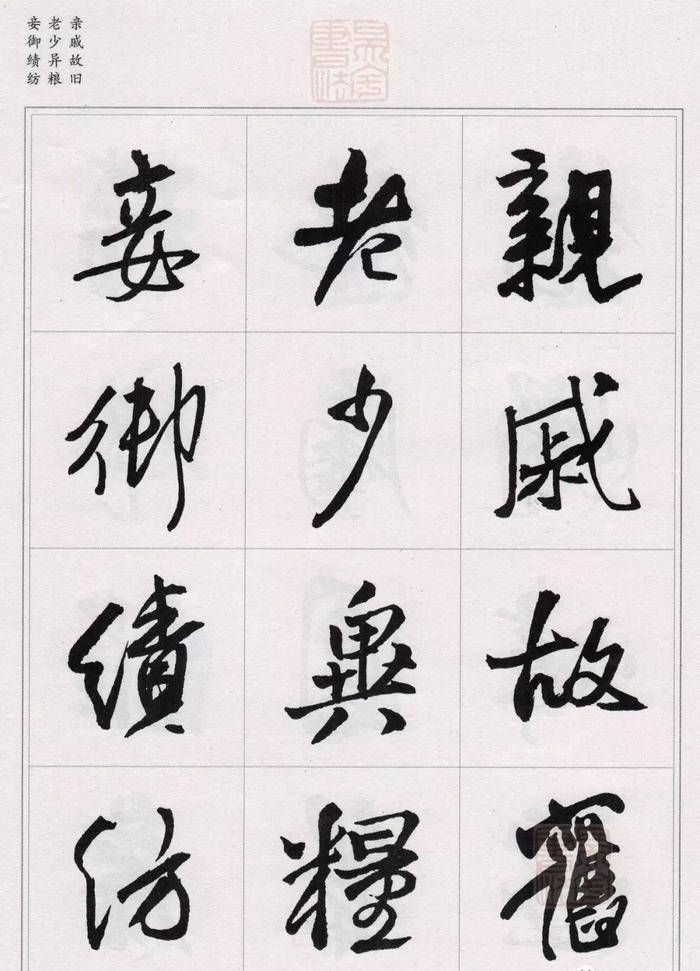 亲戚故旧
老少异粮
妾御绩纺
親戚故舊
老少異糧
妾御績紡